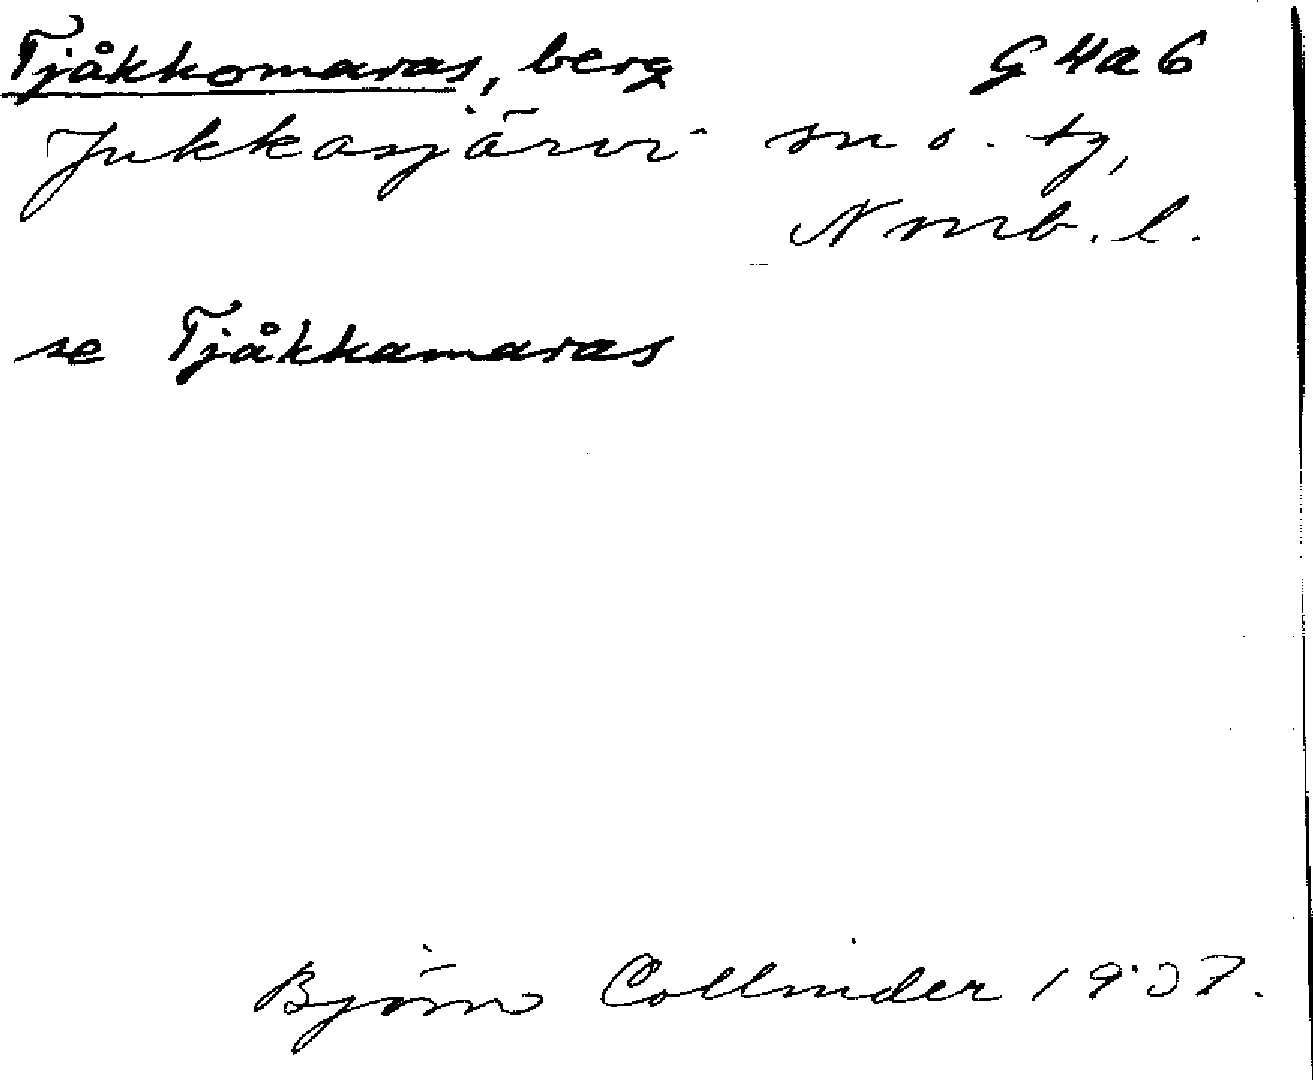 Tjåkkomaras, berg G4a6
Jukkasjärvi sn o. tg,
Nrrb. l.
se Tjåkkamaras
Björn Collinder 1937.